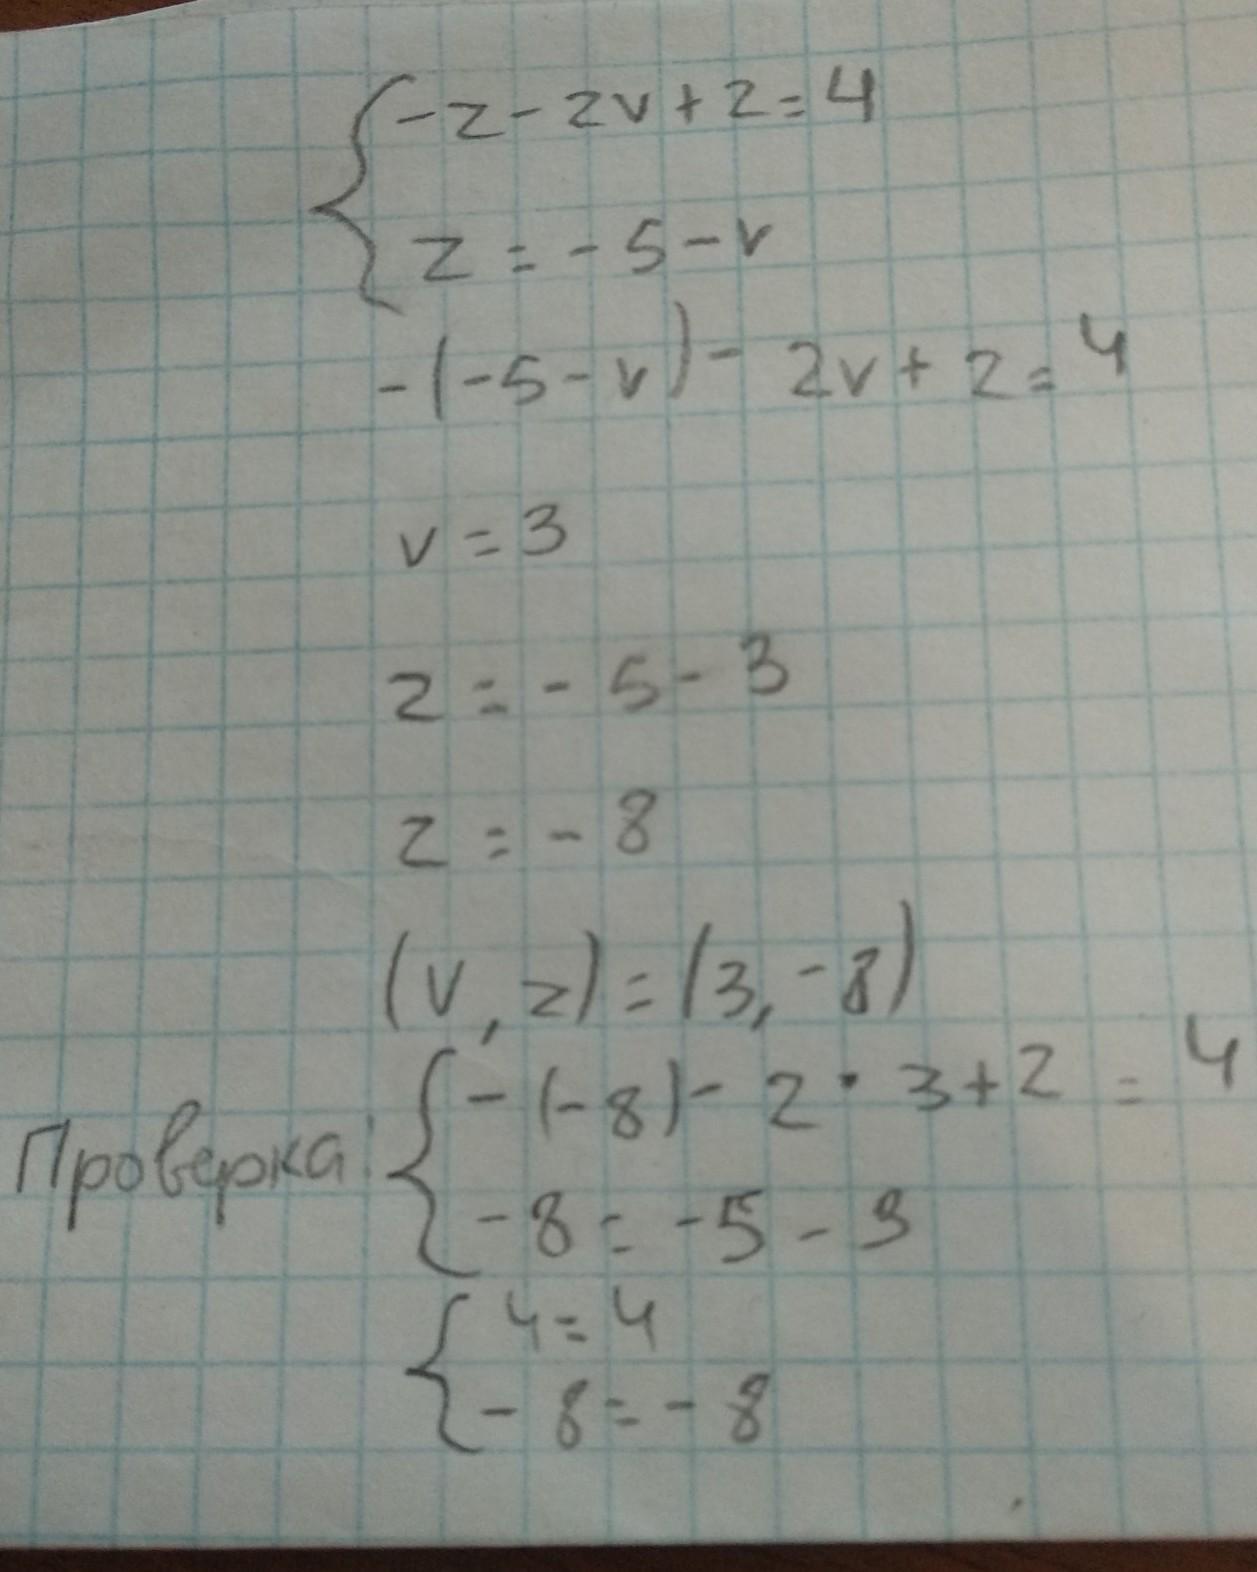 { -z - 2v + 2 = 4
z = -5 - v
-(-5 - v) - 2v + 2 = 4
v = 3
z = -5 - 3
z = -8
(v, z) = (3, -8)
Проверка: { -(-8) - 2 · 3 + 2 = 4
-8 = -5 - 3
{ 4 = 4
-8 = -8